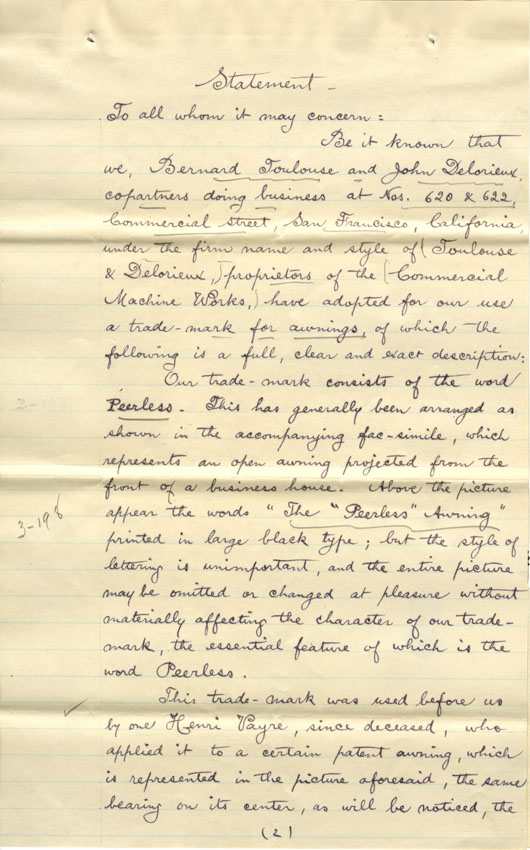 Statement -
To all whom it may concern:
Be it known that
we, Bernard Toulouse and John Delorieux,
copartners doing business at Nos. 620 & 622,
Commercial street, San Francisco, California,
under the firm name and style of (Toulouse
& Delorieux,) proprietors of the (Commercial
Machine Works,) have adopted for our use
a trade-mark for awnings, of which the
following is a full, clear and exact description:
Our trade-mark consists of the word
Peerless. This has generally been arranged as
shown in the accompanying fac-simile, which
represents an open awning projected from the
front of a business house. Above the picture
appear the words "The "Peerless" Awning"
printed in large black type; but the style of
lettering is unimportant, and the entire picture
may be omitted or changed at pleasure without
materially affecting the character of our trade-
mark, the essential feature of which is the
word Peerless.
This trade-mark was used before us
by one Henri Vayre, since deceased, who
applied it to a certain patent awning, which
is represented in the picture aforesaid, the same
bearing on its center, as will be noticed, the
(2)
3-198